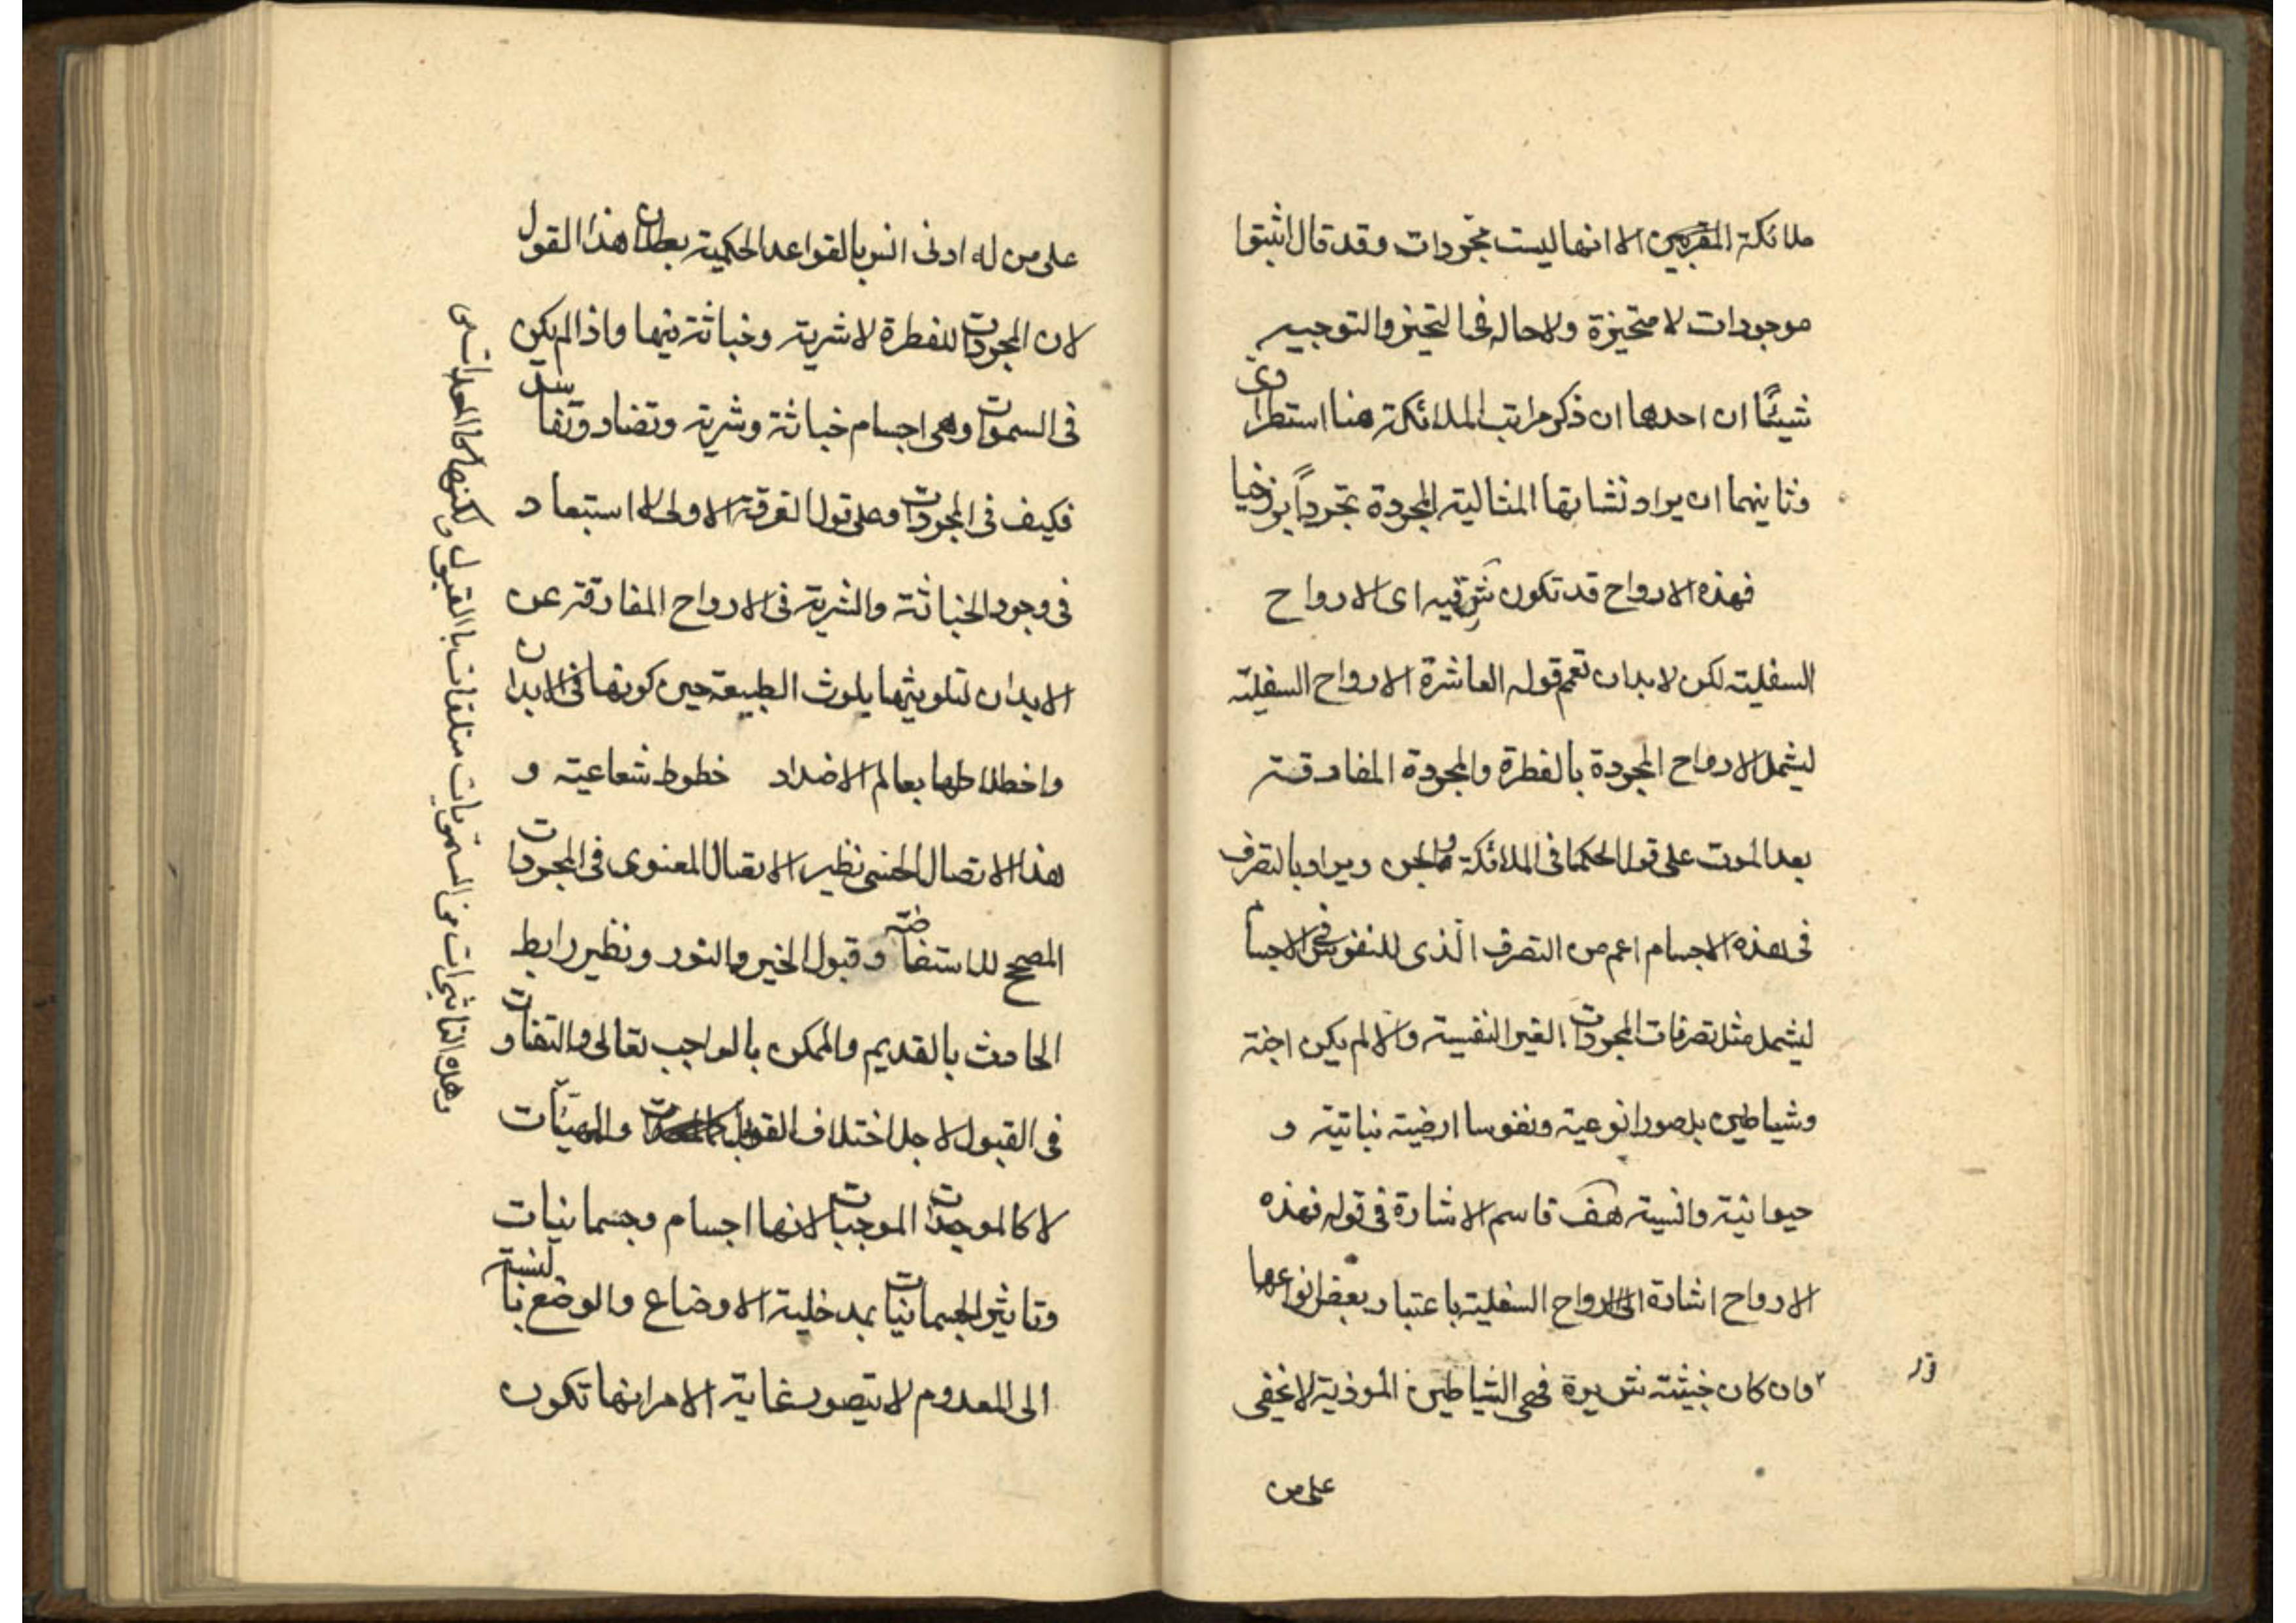 ملائكة المقربين الا انها ليست مجردات وقد قال اثبتوا
موجودات لا متحيزة ولا حالة فى التحيز والتوجيه
شيئان احدها ان ذكر مراتب الملائكة هنا استطرادى
وثانيهما ان يراد نشاتها المثالية المجردة تجرداً برزخيا
فهذه الارواح قد تكون شرقيه اى الارواح
السفلية لكن لا بد ان تعمم قوله العاشرة الارواح السفلية
ليشمل الارواح المجردة بالفطرة والمجردة المفارقة
بعد الموت على قول الحكما فى الملائكة والجن ويراد بالتصرف
فى هذه الاجسام اعم من التصرف الذى للنفوس فى الاجسام
ليشمل مثل تصرفات المجردات الغير النفسية والا لم يكن اجنة
وشياطين بل صورا نوعية ونفوسا ارضية نباتية و
حيوانية وانسية هف قاسم الاشارة فى قوله فهذه
الارواح اشارة الى الارواح السفلية باعتبار بعض انواعها
قوله
وان كان خبيثة شريرة فهى الشياطين الموذية لا يخفى
على من
على من له ادنى انس بالقواعد الحكمية بطلان هذا القول
لان المجردات للفطرة لا شرية وخباثة فيها واذا لم يكن
فى السموات وهى اجسام خباثة وشرية وتضاد وتفاسد
فكيف فى المجردات وعلى قول الفرقة الاولى لا استبعاد
فى وجود الخباثة والشرية فى الارواح المفارقة عن
الابدان لتلويثها بلوث الطبيعة حين كونها فى الابدان
واختلاطها بعالم الاضداد خطوط شعاعية و
هذا الاتصال الحسى نظير الاتصال المعنوى فى المجردات
المصحح للاستفاضة وقبول الخير والنور ونظير رابط
الحادث بالقديم والممكن بالواجب تعالى والتفاوت
فى القبول لاجل اختلاف القوابل والهيئات
لا كالموجدات الموجبات لانها اجسام وجسمانيات
وتاثير الجسمانيات بمدخلية الاوضاع والوضع بالنسبة
الى المعدوم لا يتصور غاية الامر انها تكون
وهذه التاثيرات من السمويات متلقات بالقبول ولكنها كالمعدات